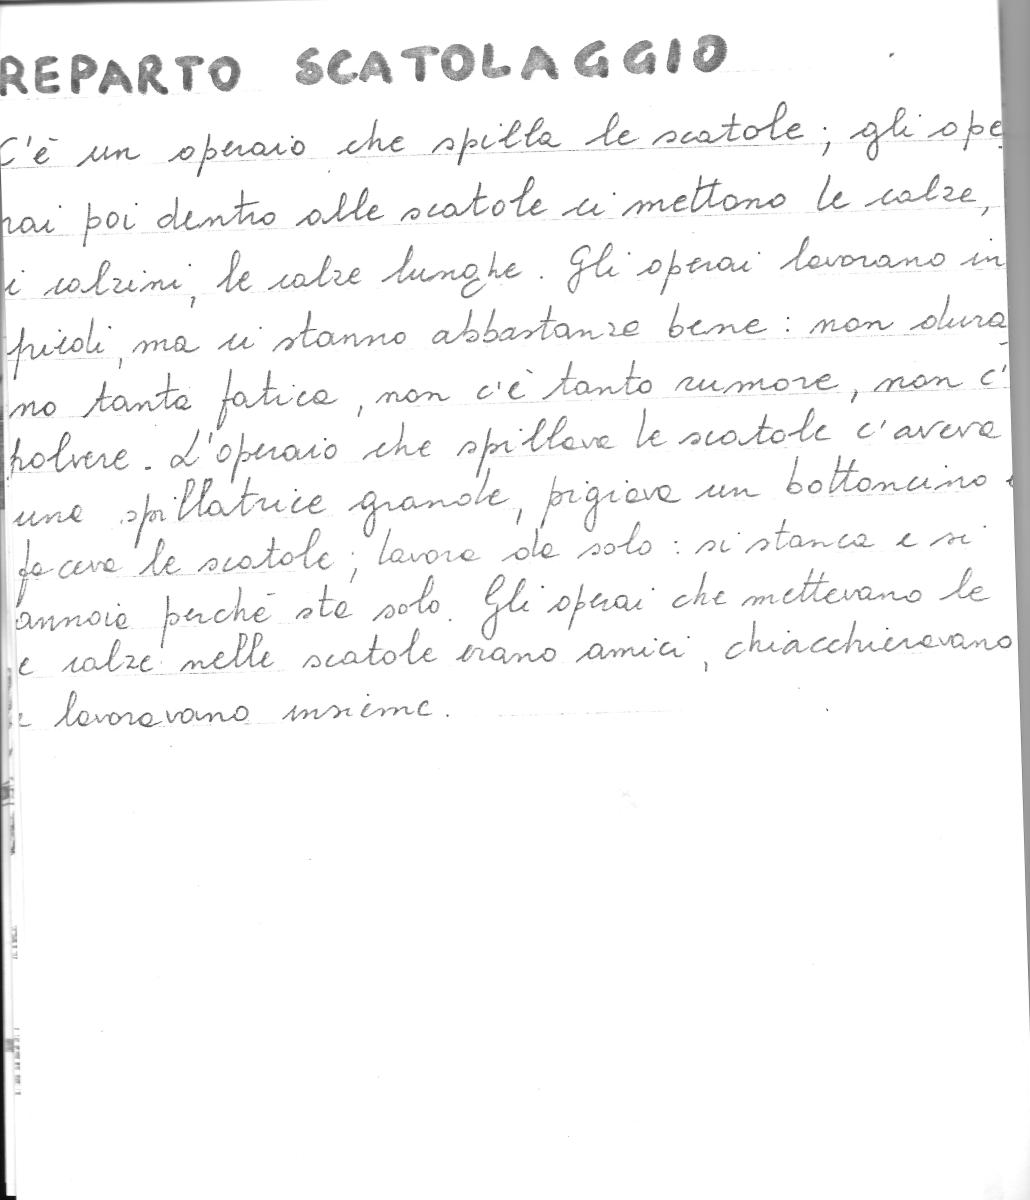 REPARTO SCATOLAGGIO
C'è un operaio che spilla le scatole; gli ope
rai poi dentro alle scatole ci mettono le calze,
i calzini, le calze lunghe. Gli operai lavorano in
piedi, ma ci stanno abbastanza bene: non dura
no tanta fatica, non c'è tanto rumore, non c'
polvere. L'operaio che spillava le scatole c'aveva
una spillatrice grande, pigiava un bottoncino e
faceva le scatole; lavora da solo: si stanca e si
annoia perché sta solo. Gli operai che mettevano le
e calze nelle scatole erano amici, chiacchieravano
e lavoravano insieme.